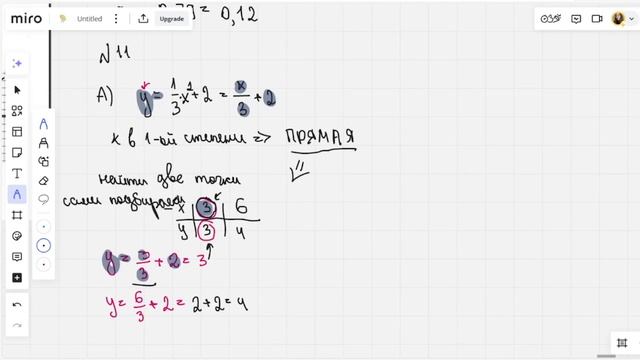 miro
Untitled
Upgrade
0,12
N11
А) y = 1/3·x¹ + 2 = x/3 + 2
x в 1-ой степени => ПРЯМАЯ
найти две точки
сами подбираем
x | 3 | 6
y | 3 | 4
y = 3/3 + 2 = 3
y = 6/3 + 2 = 2 + 2 = 4